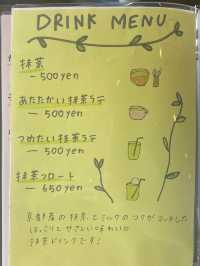 DRINK MENU
抹茶
— 500yen
あたたかい抹茶ラテ
— 500yen
つめたい抹茶ラテ
— 500yen
抹茶フロート
— 650yen
京都産の抹茶とミルクのコクがマッチした
ほっこりとやさしい味わいの
抹茶ドリンクです！